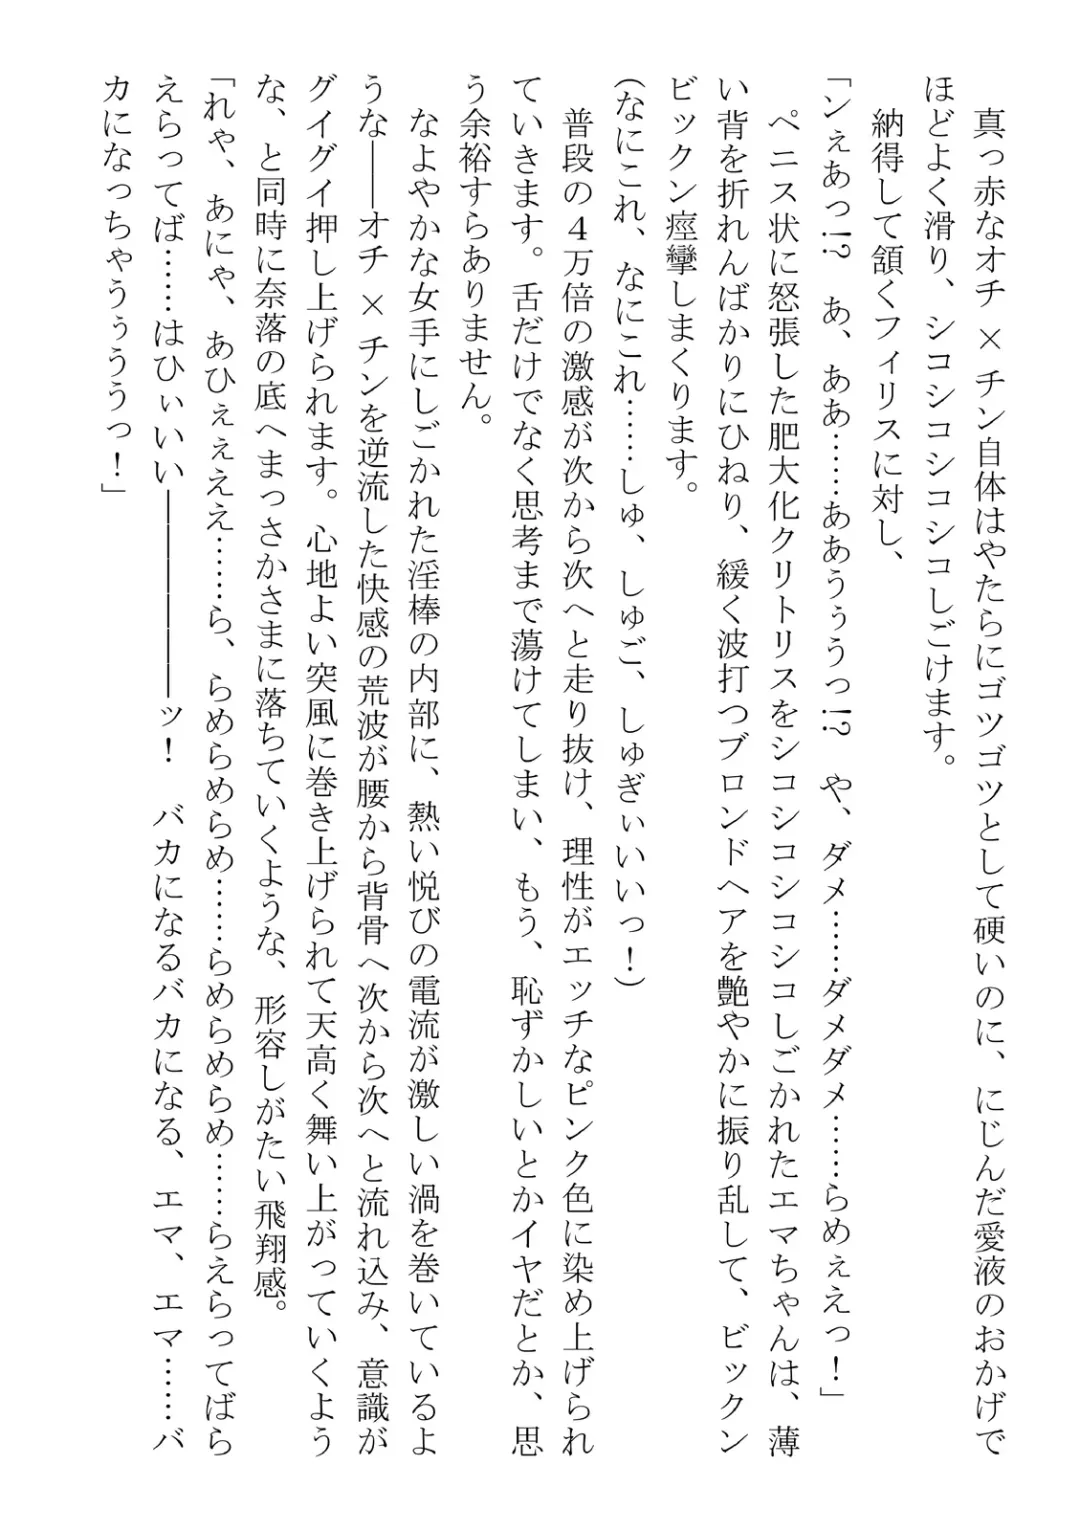 真っ赤なオチ×チン自体はやたらにゴツゴツとして硬いのに、にじんだ愛液のおかげで
ほどよく滑り、シコシコシコシコしごけます。
　納得して頷くフィリスに対し、
「ンぇあっ!?　あ、ああ……ああうぅうっ!?　や、ダメ……ダメダメ……らめぇえっ！」
　ペニス状に怒張した肥大化クリトリスをシコシコシコシコしごかれたエマちゃんは、薄
い背を折れんばかりにひねり、緩く波打つブロンドヘアを艶やかに振り乱して、ビックン
ビックン痙攣しまくります。
(なにこれ、なにこれ……しゅ、しゅご、しゅぎぃいいっ！)
　普段の４万倍の激感が次から次へと走り抜け、理性がエッチなピンク色に染め上げられ
ていきます。舌だけでなく思考まで蕩けてしまい、もう、恥ずかしいとかイヤだとか、思
う余裕すらありません。
　なよやかな女手にしごかれた淫棒の内部に、熱い悦びの電流が激しい渦を巻いているよ
うな――オチ×チンを逆流した快感の荒波が腰から背骨へ次から次へと流れ込み、意識が
グイグイ押し上げられます。心地よい突風に巻き上げられて天高く舞い上がっていくよう
な、と同時に奈落の底へまっさかさまに落ちていくような、形容しがたい飛翔感。
「れゃ、あにゃ、あひぇぇええ……ら、らめらめらめ……らめらめらめ……らえらってばら
えらってば……はひぃいい――――――ッ！　バカになるバカになる、エマ、エマ……バ
カになっちゃうぅううっ！」